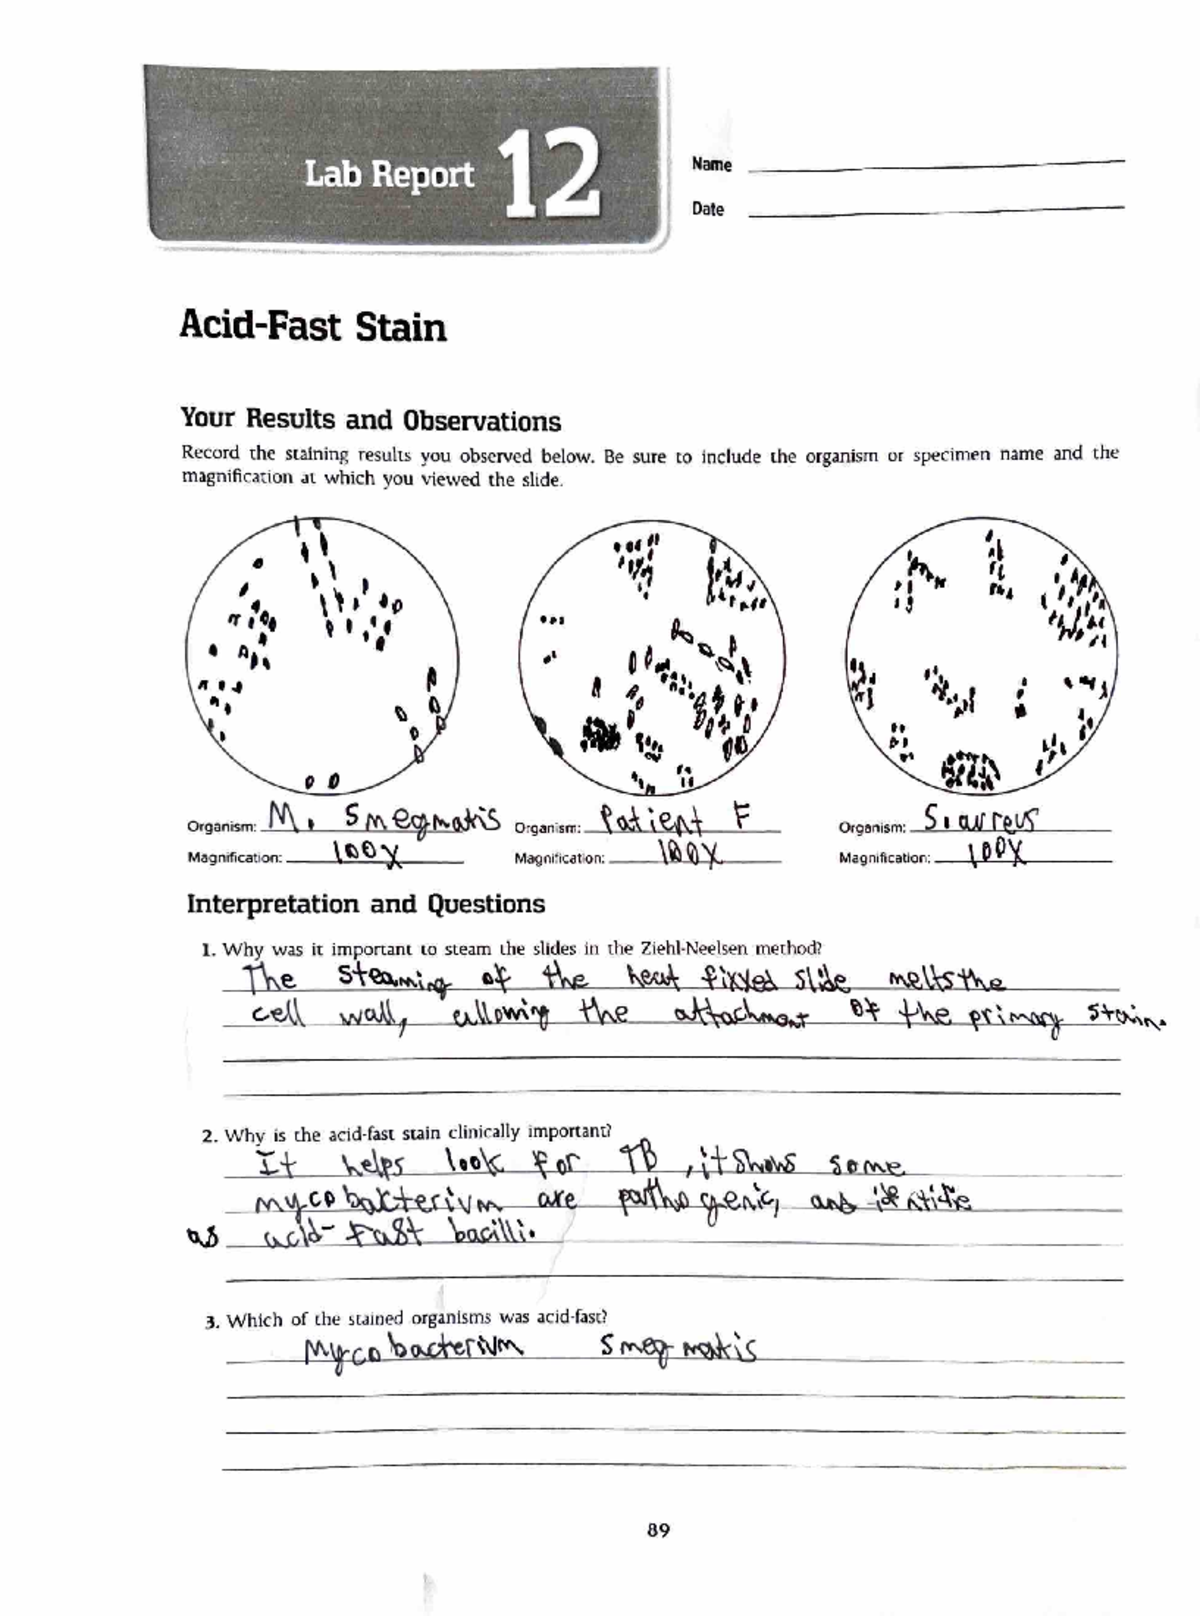 Lab Report 12
Name
Date
Acid-Fast Stain
Your Results and Observations
Record the staining results you observed below. Be sure to include the organism or specimen name and the
magnification at which you viewed the slide.
Organism: M. Smegmatis Organism: Patient F Organism: S. aureus
Magnification: 100X Magnification: 100X Magnification: 100X
Interpretation and Questions
1. Why was it important to steam the slides in the Ziehl-Neelsen method?
The steaming of the heat fixxed slide melts the
cell wall, allowing the attachment of the primary stain.
2. Why is the acid-fast stain clinically important?
It helps look for TB, it shows some
mycobakterium are pathogenic, and identifie
as acid-fast bacilli.
3. Which of the stained organisms was acid-fast?
Mycobacterium Smegmatis
89